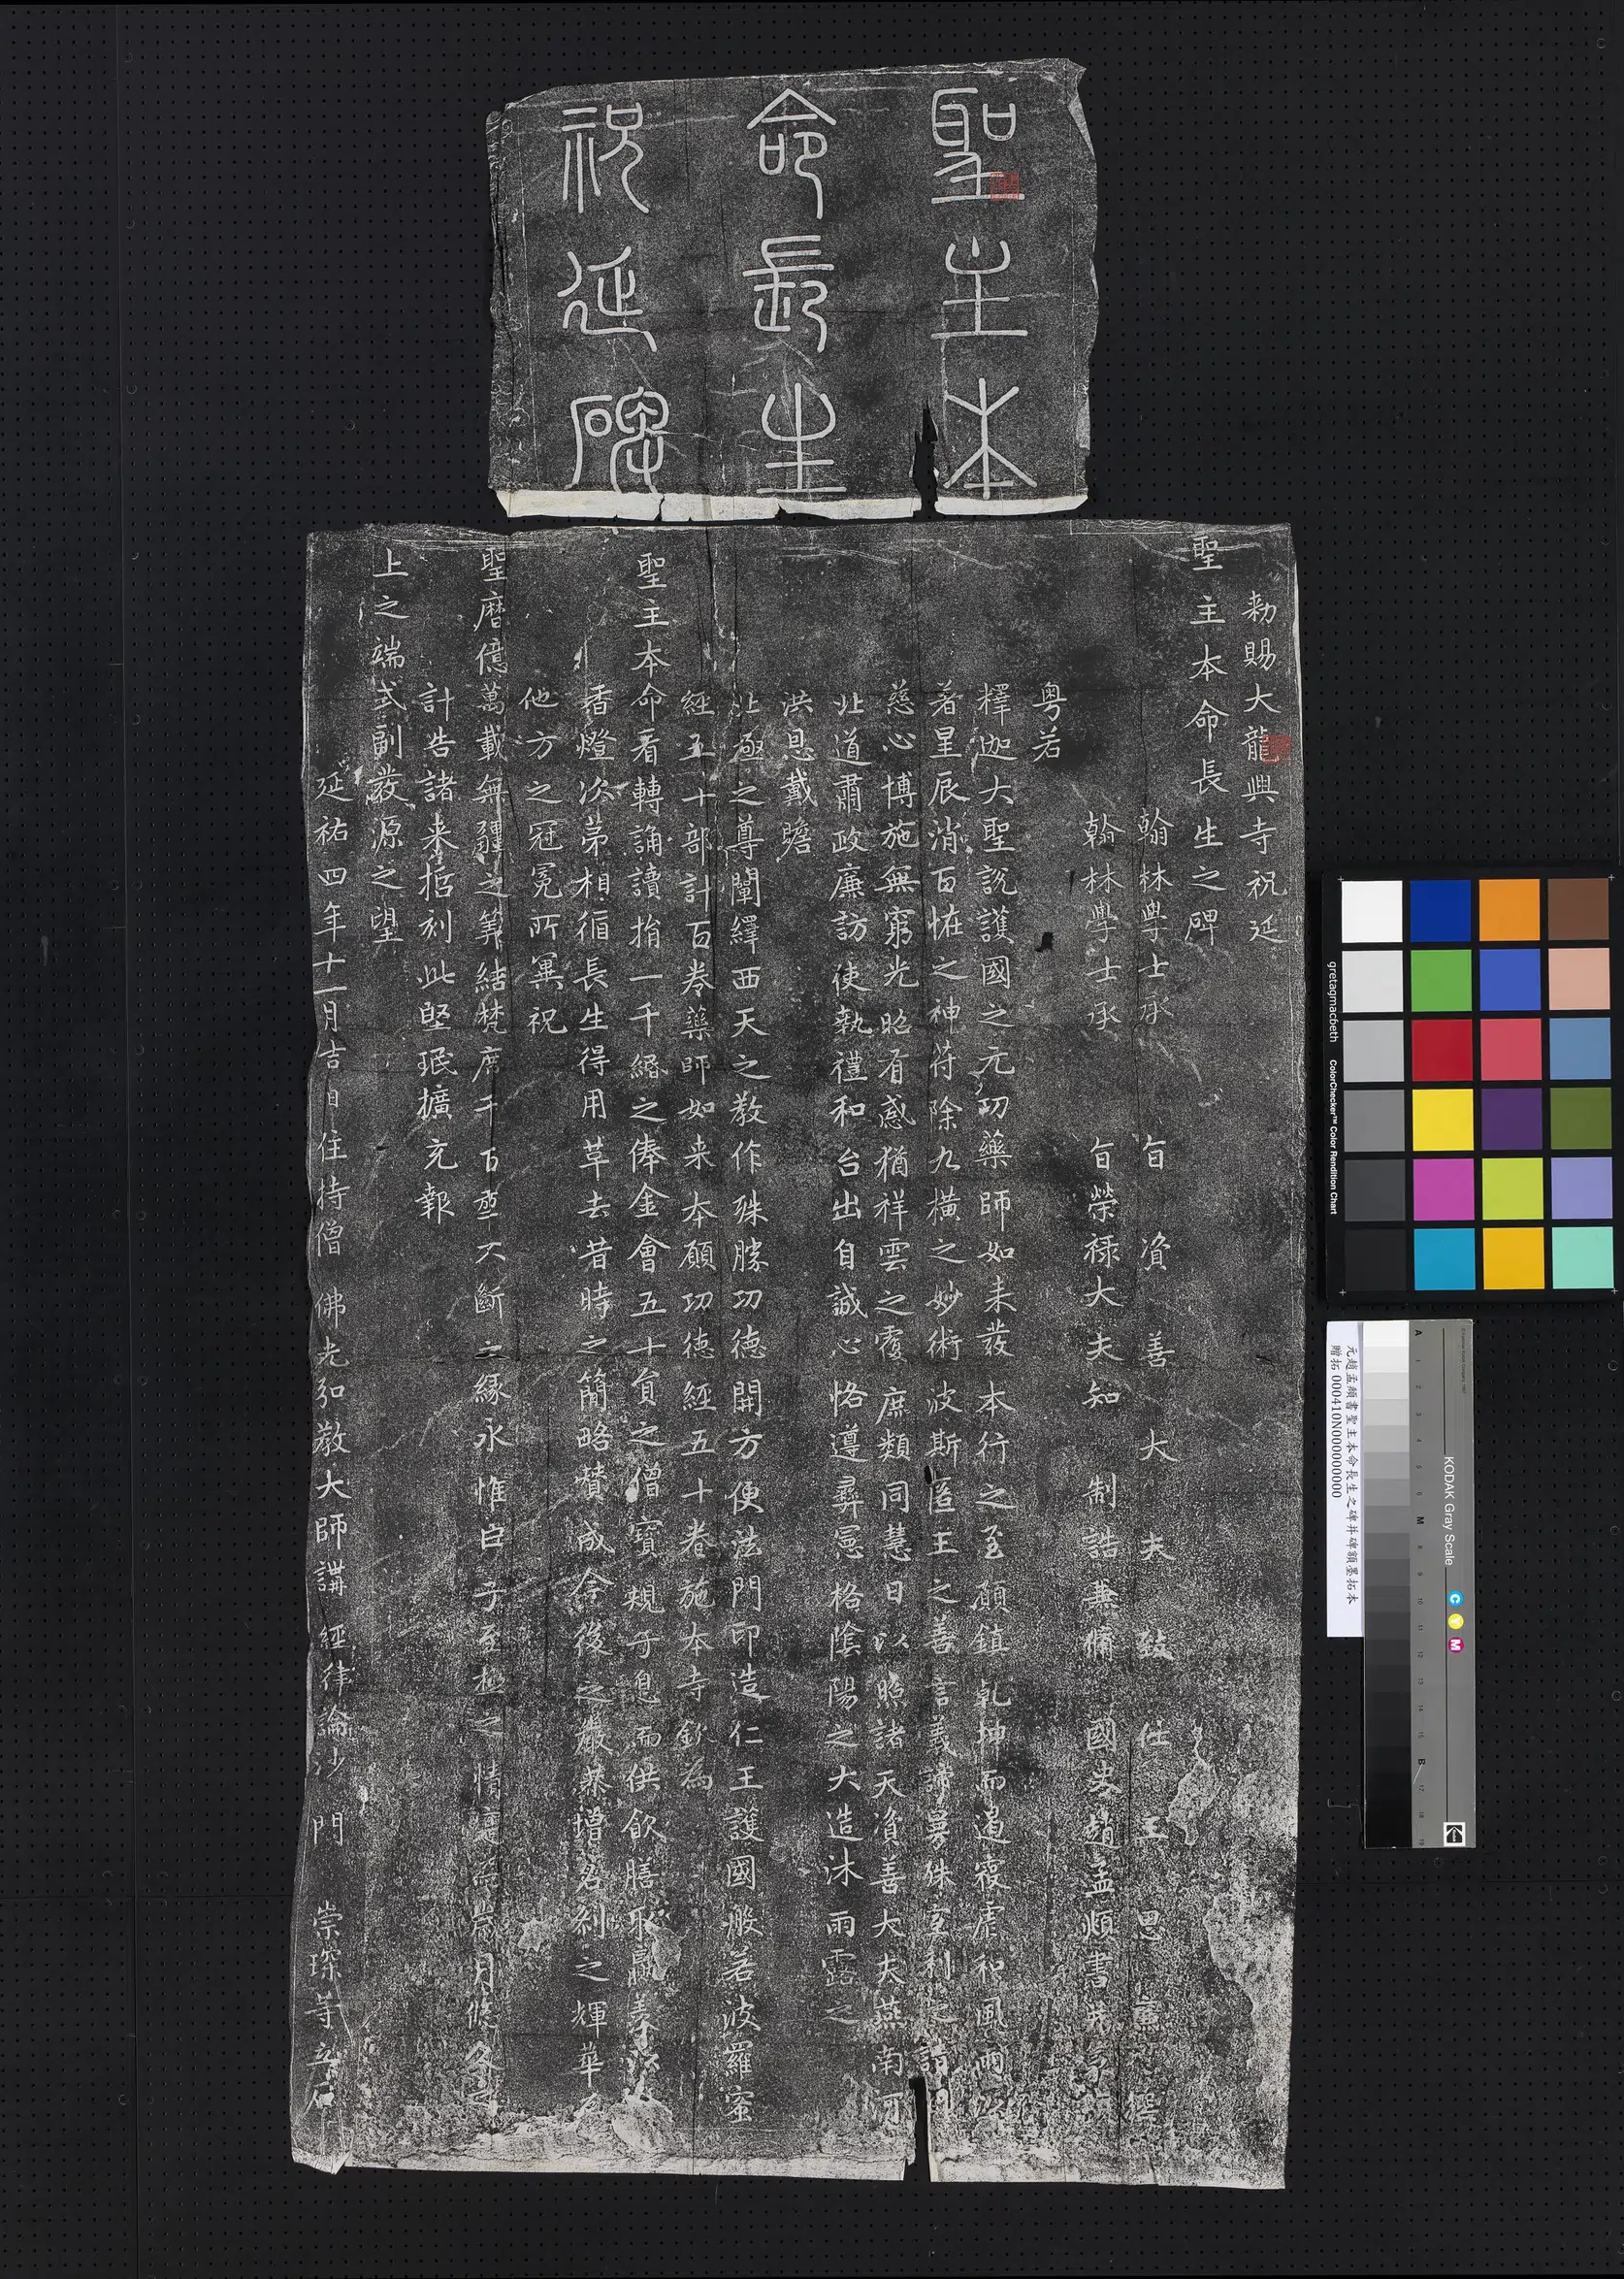 聖主本
命長生
祝延碑
勑賜大龍興寺祝延
聖主本命長生之碑
翰林學士承旨資善大夫致仕王思廉
翰林學士承旨榮祿大夫知制誥兼脩國史趙孟頫書
粵若
釋迦大聖說護國之元功藥師如來發本行之至願鎮乾坤而
著星辰消百恠之神符除九橫之妙術波斯匿王之善言義諦
慈心博施無窮光昭有感猶祥雲之覆庶類同慧日以照諸天資善大夫燕南河
北道肅政廉訪使執禮和台出自誠心恪遵彞憲格陰陽之大造沐雨露之
洪恩戴瞻
北極之尊闡繹西天之教作殊勝功德開方便法門印造仁王護國般若波羅蜜
經五十部計百卷藥師如来本願功德經五十卷施本寺欽為
聖主本命看轉誦讀捐一千緡之俸金會五十員之僧寶規子息而供飲膳
香燈次第相循長生得用革去昔時之簡略賛成今後之嚴恭增名刹之輝華
他方之冠冕所冀祝
聖曆億萬載無疆之筭結梵席千百堊不斷之緣永惟臣子至極之情慮歲月悠久
計告諸来哲刻此堅珉擴充報
上之端式副發源之望
延祐四年十一月吉日住持僧佛光弘教大師講經律論沙門崇琛等立石
元趙孟頫書聖主本命長生之碑并碑額墨拓本
贈拓 000410N000000000
gretagmacbeth
ColorChecker™ Color Rendition Chart
KODAK Gray Scale
C Y M
A 1 2 3 4 5 6 M 8 9 10 11 12 13 14 15 B 17 18 19